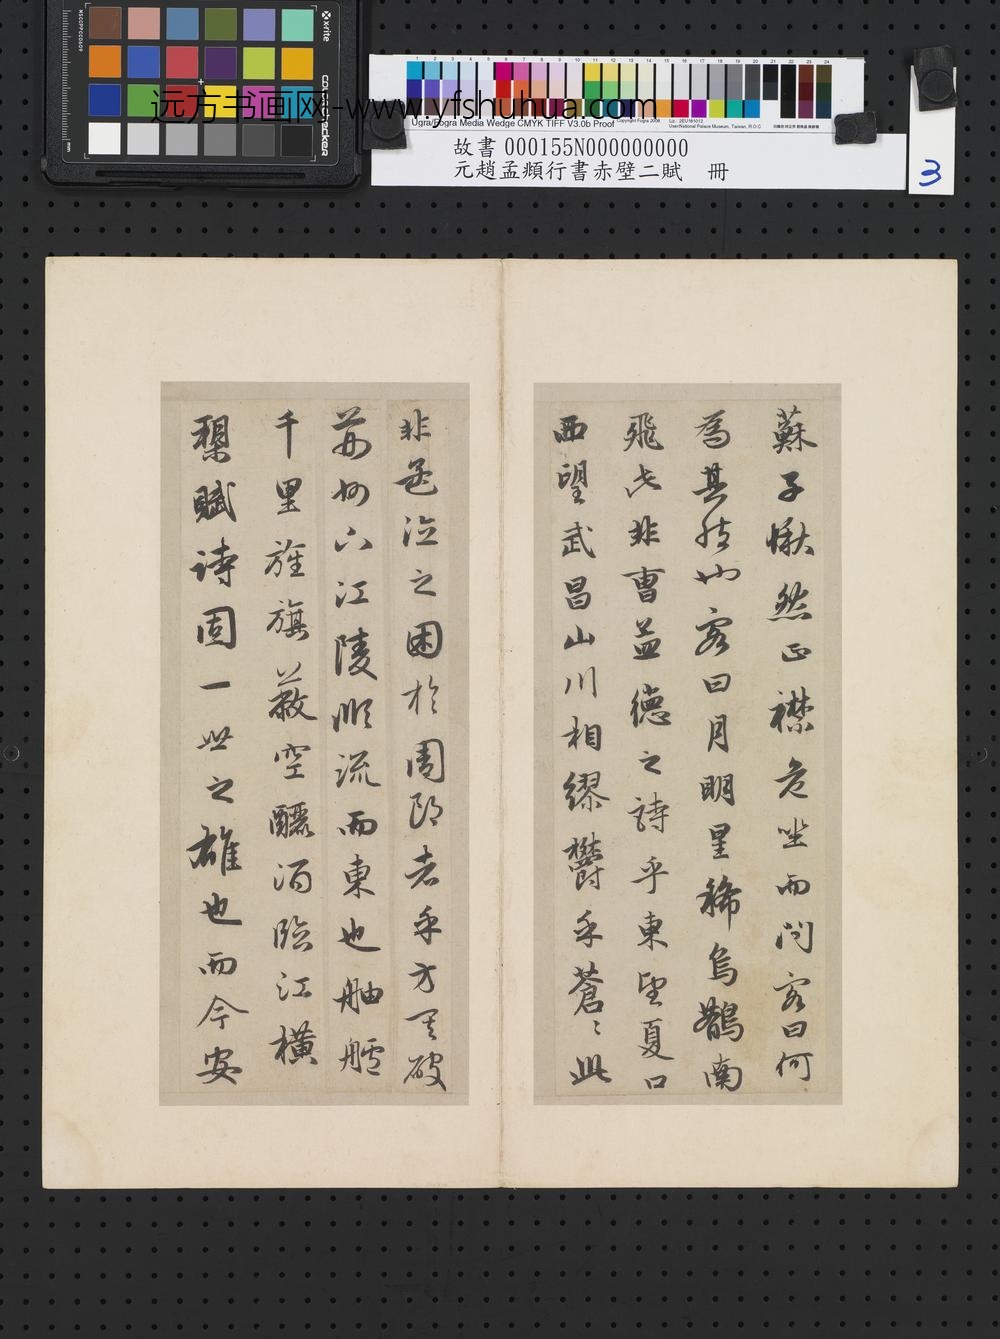 x·rite
colorchecker
mm
远方书画网-www.yfshuhua.com
Ugra/Fogra Media Wedge CMYK TIFF V3.0b Proof
故書 000155N000000000
元趙孟頫行書赤壁二賦 冊
3
蘇子愀然正襟危坐而問客曰何
為其然也客曰月明星稀烏鵲南
飛此非曹孟德之詩乎東望夏口
西望武昌山川相繆鬱乎蒼〻此
非孟德之困於周郎者乎方其破
荊州下江陵順流而東也舳艫
千里旌旗蔽空釃酒臨江橫
槊賦詩固一世之雄也而今安